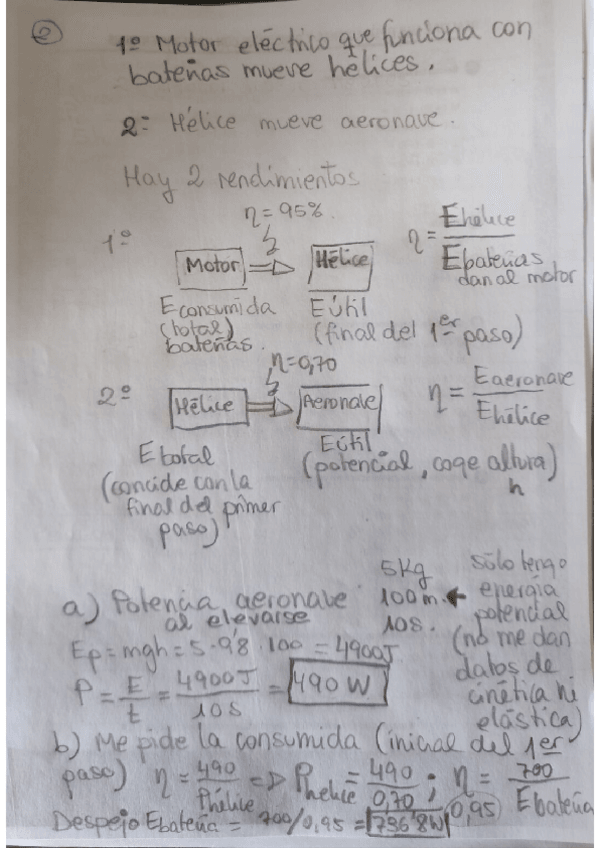 ②
1º Motor eléctrico que funciona con
baterias mueve hélices.
2= Hélice mueve aeronave.
Hay 2 rendimientos
η=95%.
1º
Motor
Hélice
η = Ehélice / Ebaterias dan al motor
Econsumida
(total)
baterias.
EÚtil
(final del 1er paso)
η=0,70
2º
Hélice
Aeronave
η = Eaeronave / Ehélice
Etotal
(concide con la
final del primer
paso)
EÚtil
(potencial, coge altura)
h
a) Potencia aeronave
al elevarse
5Kg
100m.
10s.
sólo tengo
energía
potencial
(no me dan
datos de
cinética ni
elástica)
Ep=mgh=5·9'8·100=4900J
P = E/t = 4900J/10s = 490W
b) Me pide la consumida (inicial del 1er
paso) η = 490/Phélice => Phelice = 490/0,70 ; η = 700/Ebateria
(0,95)
Despejo Ebateria = 700/0,95 = 736'8W